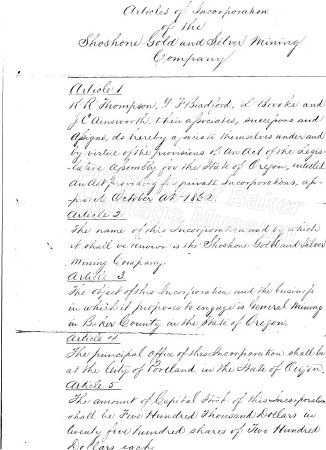 Articles of Incorporation
of the
Shoshone Gold and Silver Mining
Company
Article 1
R R Thompson, D F Bradford, L Brooke and
J C Ainsworth, their associates, successors and
assigns, do hereby associate themselves under and
by virtue of the provisions of An Act of the Legis-
lative Assembly for the State of Oregon, entitled
An Act providing for private Incorporations, ap-
proved October 1862.
Article 2
The name of this Incorporation and by which
it shall be known is the Shoshone Gold and Silver
Mining Company.
Article 3
The object of this Incorporation and the business
in which it proposes to engage is General Mining
in Baker County in the State of Oregon.
Article 4
The principal Office of this Incorporation shall be
at the City of Portland in the State of Oregon.
Article 5
The amount of Capital Stock of this Incorporation
shall be Five Hundred Thousand Dollars in
twenty five hundred shares of Two Hundred
Dollars each
Baker